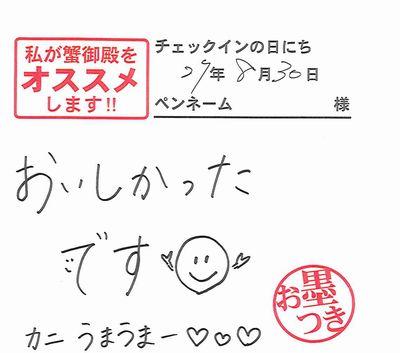 私が蟹御殿を
オススメ
します!!
チェックインの日にち
27年8月30日
ペンネーム 様
おいしかった
です
カニ うまうまー♡♡♡
お墨つき